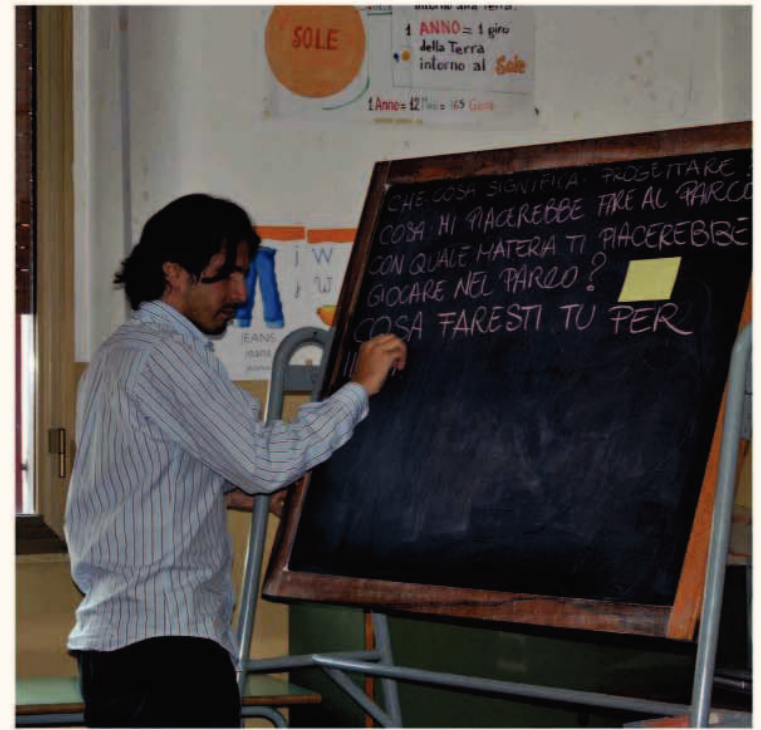 SOLE
intorno alla Terra.
1 ANNO = 1 giro
della Terra
intorno al Sole
1 Anno = 12 Mesi = 365 Giorni
CHE COSA SIGNIFICA PROGETTARE ?
COSA MI PIACEREBBE FARE AL PARCO
CON QUALE MATERIA TI PIACEREBBE
GIOCARE NEL PARCO ?
COSA FARESTI TU PER
i W
JEANS
jeans